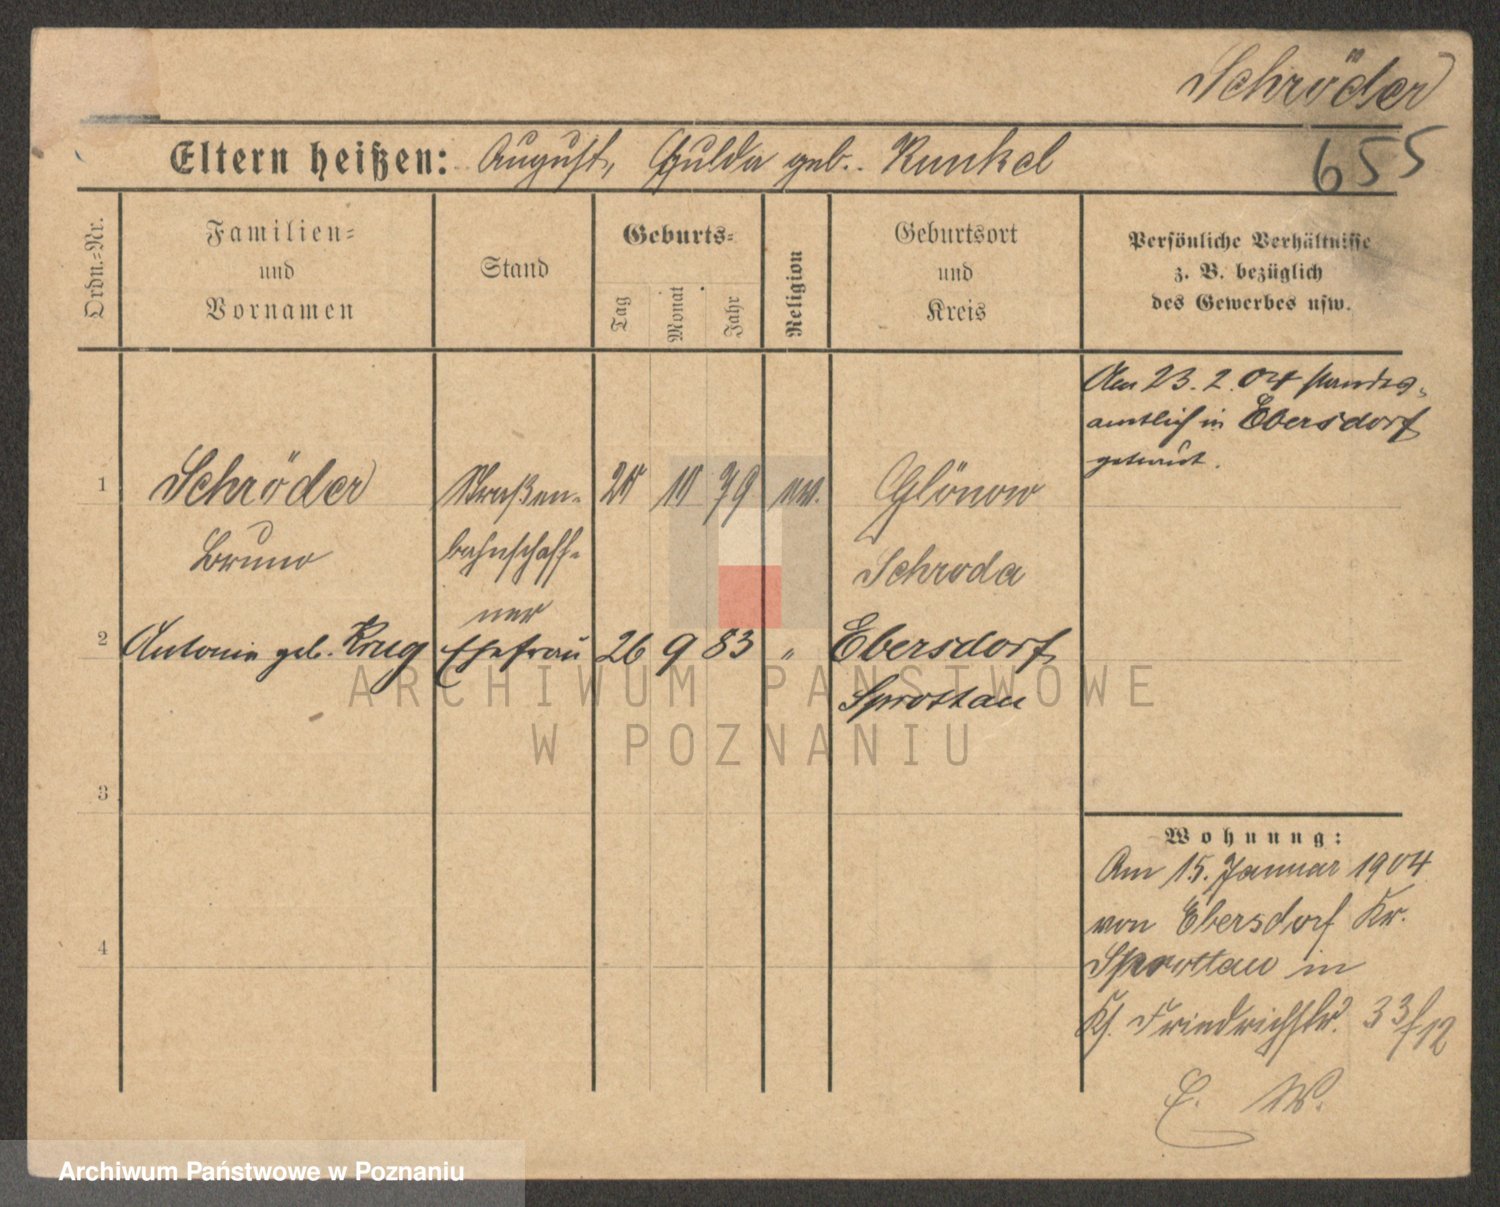 Schröder
655
Eltern heißen: August, Hulda geb. Kunkel
Ordn.-Nr.
Familien-
und
Vornamen
Stand
Geburts-
Tag
Monat
Jahr
Religion
Geburtsort
und
Kreis
Persönliche Verhältnisse
z. B. bezüglich
des Gewerbes usw.
Am 23. 2. 04 standes-
amtlich in Ebersdorf
getraut.
1
Schröder
Bruno
Straßen-
bahnschaff-
ner
79
ev.
Glönow
Schroda
2
Antonie geb. Krug
Ehefrau
26
9
83
"
Ebersdorf
Sprottau
3
4
Wohnung:
Am 15. Januar 1904
von Ebersdorf Kr.
Sprottau in
Friedrichstr. 33
E. W.
ARCHIWUM PAŃSTWOWE
W POZNANIU
Archiwum Państwowe w Poznaniu